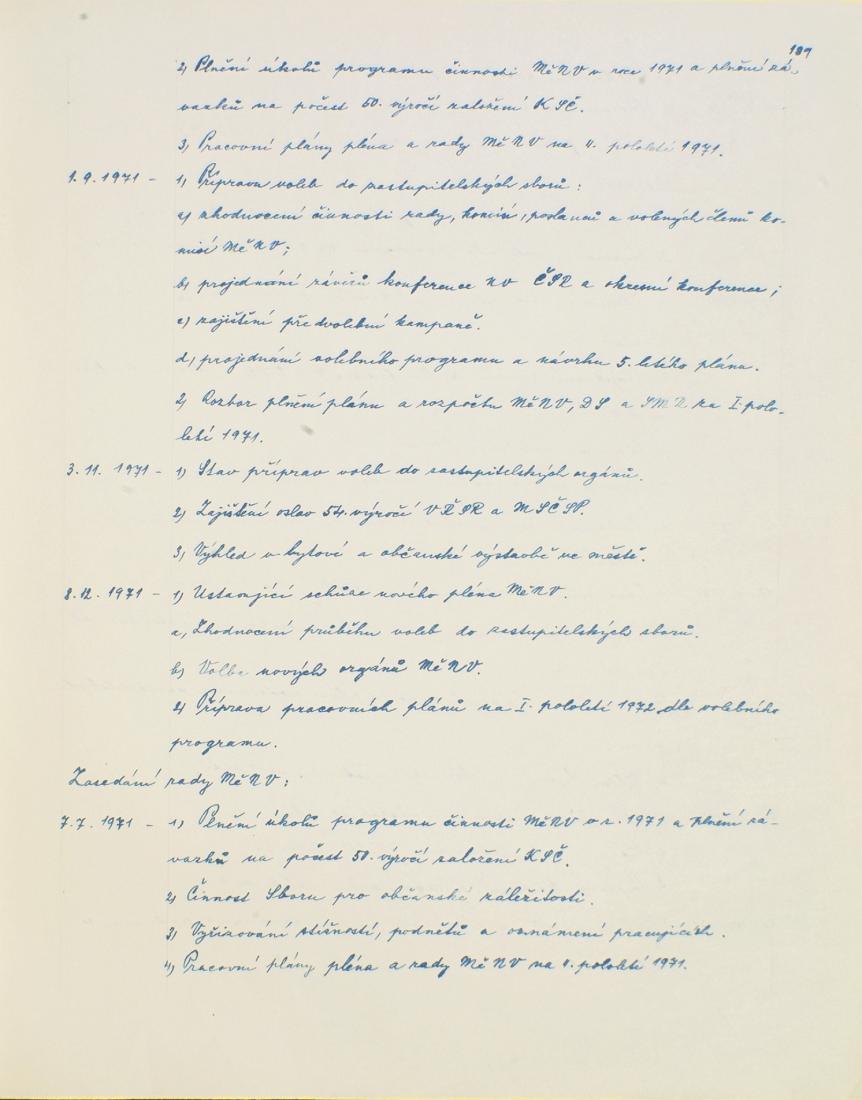 189
2) Plnění úkolů programu činnosti MěNV v roce 1971 a plnění zá-
vazků na počest 50. výročí založení KSČ.
3) Pracovní plány pléna a rady MěNV na II. pololetí 1971.
1.9.1971 - 1) Příprava voleb do zastupitelských sborů:
a) zhodnocení činnosti rady, komisí, poslanců a volených členů ko-
misí MěNV;
b) projednání závěrů konference NV ČSR a okresní konference;
c) zajištění předvolební kampaně.
d) projednání volebního programu a návrhu 5. letého plánu.
2) Rozbor plnění plánu a rozpočtu MěNV, DS a SMN za I. polo-
letí 1971.
3.11.1971 - 1) Stav příprav voleb do zastupitelských orgánů.
2) Zajištění oslav 54. výročí VŘSR a MSČSP.
3) Výhled v bytové a občanské výstavbě ve městě.
8.12.1971 - 1) Ustavující schůze nového pléna MěNV.
a) Zhodnocení průběhu voleb do zastupitelských sborů.
b) Volba nových orgánů MěNV.
2) Příprava pracovních plánů na I. pololetí 1972 dle volebního
programu.
Zasedání rady MěNV:
7.7.1971 - 1) Plnění úkolů programu činnosti MěNV v r. 1971 a plnění zá-
vazků na počest 50. výročí založení KSČ.
2) Činnost Sboru pro občanské záležitosti.
3) Vyřizování stížností, podnětů a oznámení pracujících.
4) Pracovní plány pléna a rady MěNV na II. pololetí 1971.